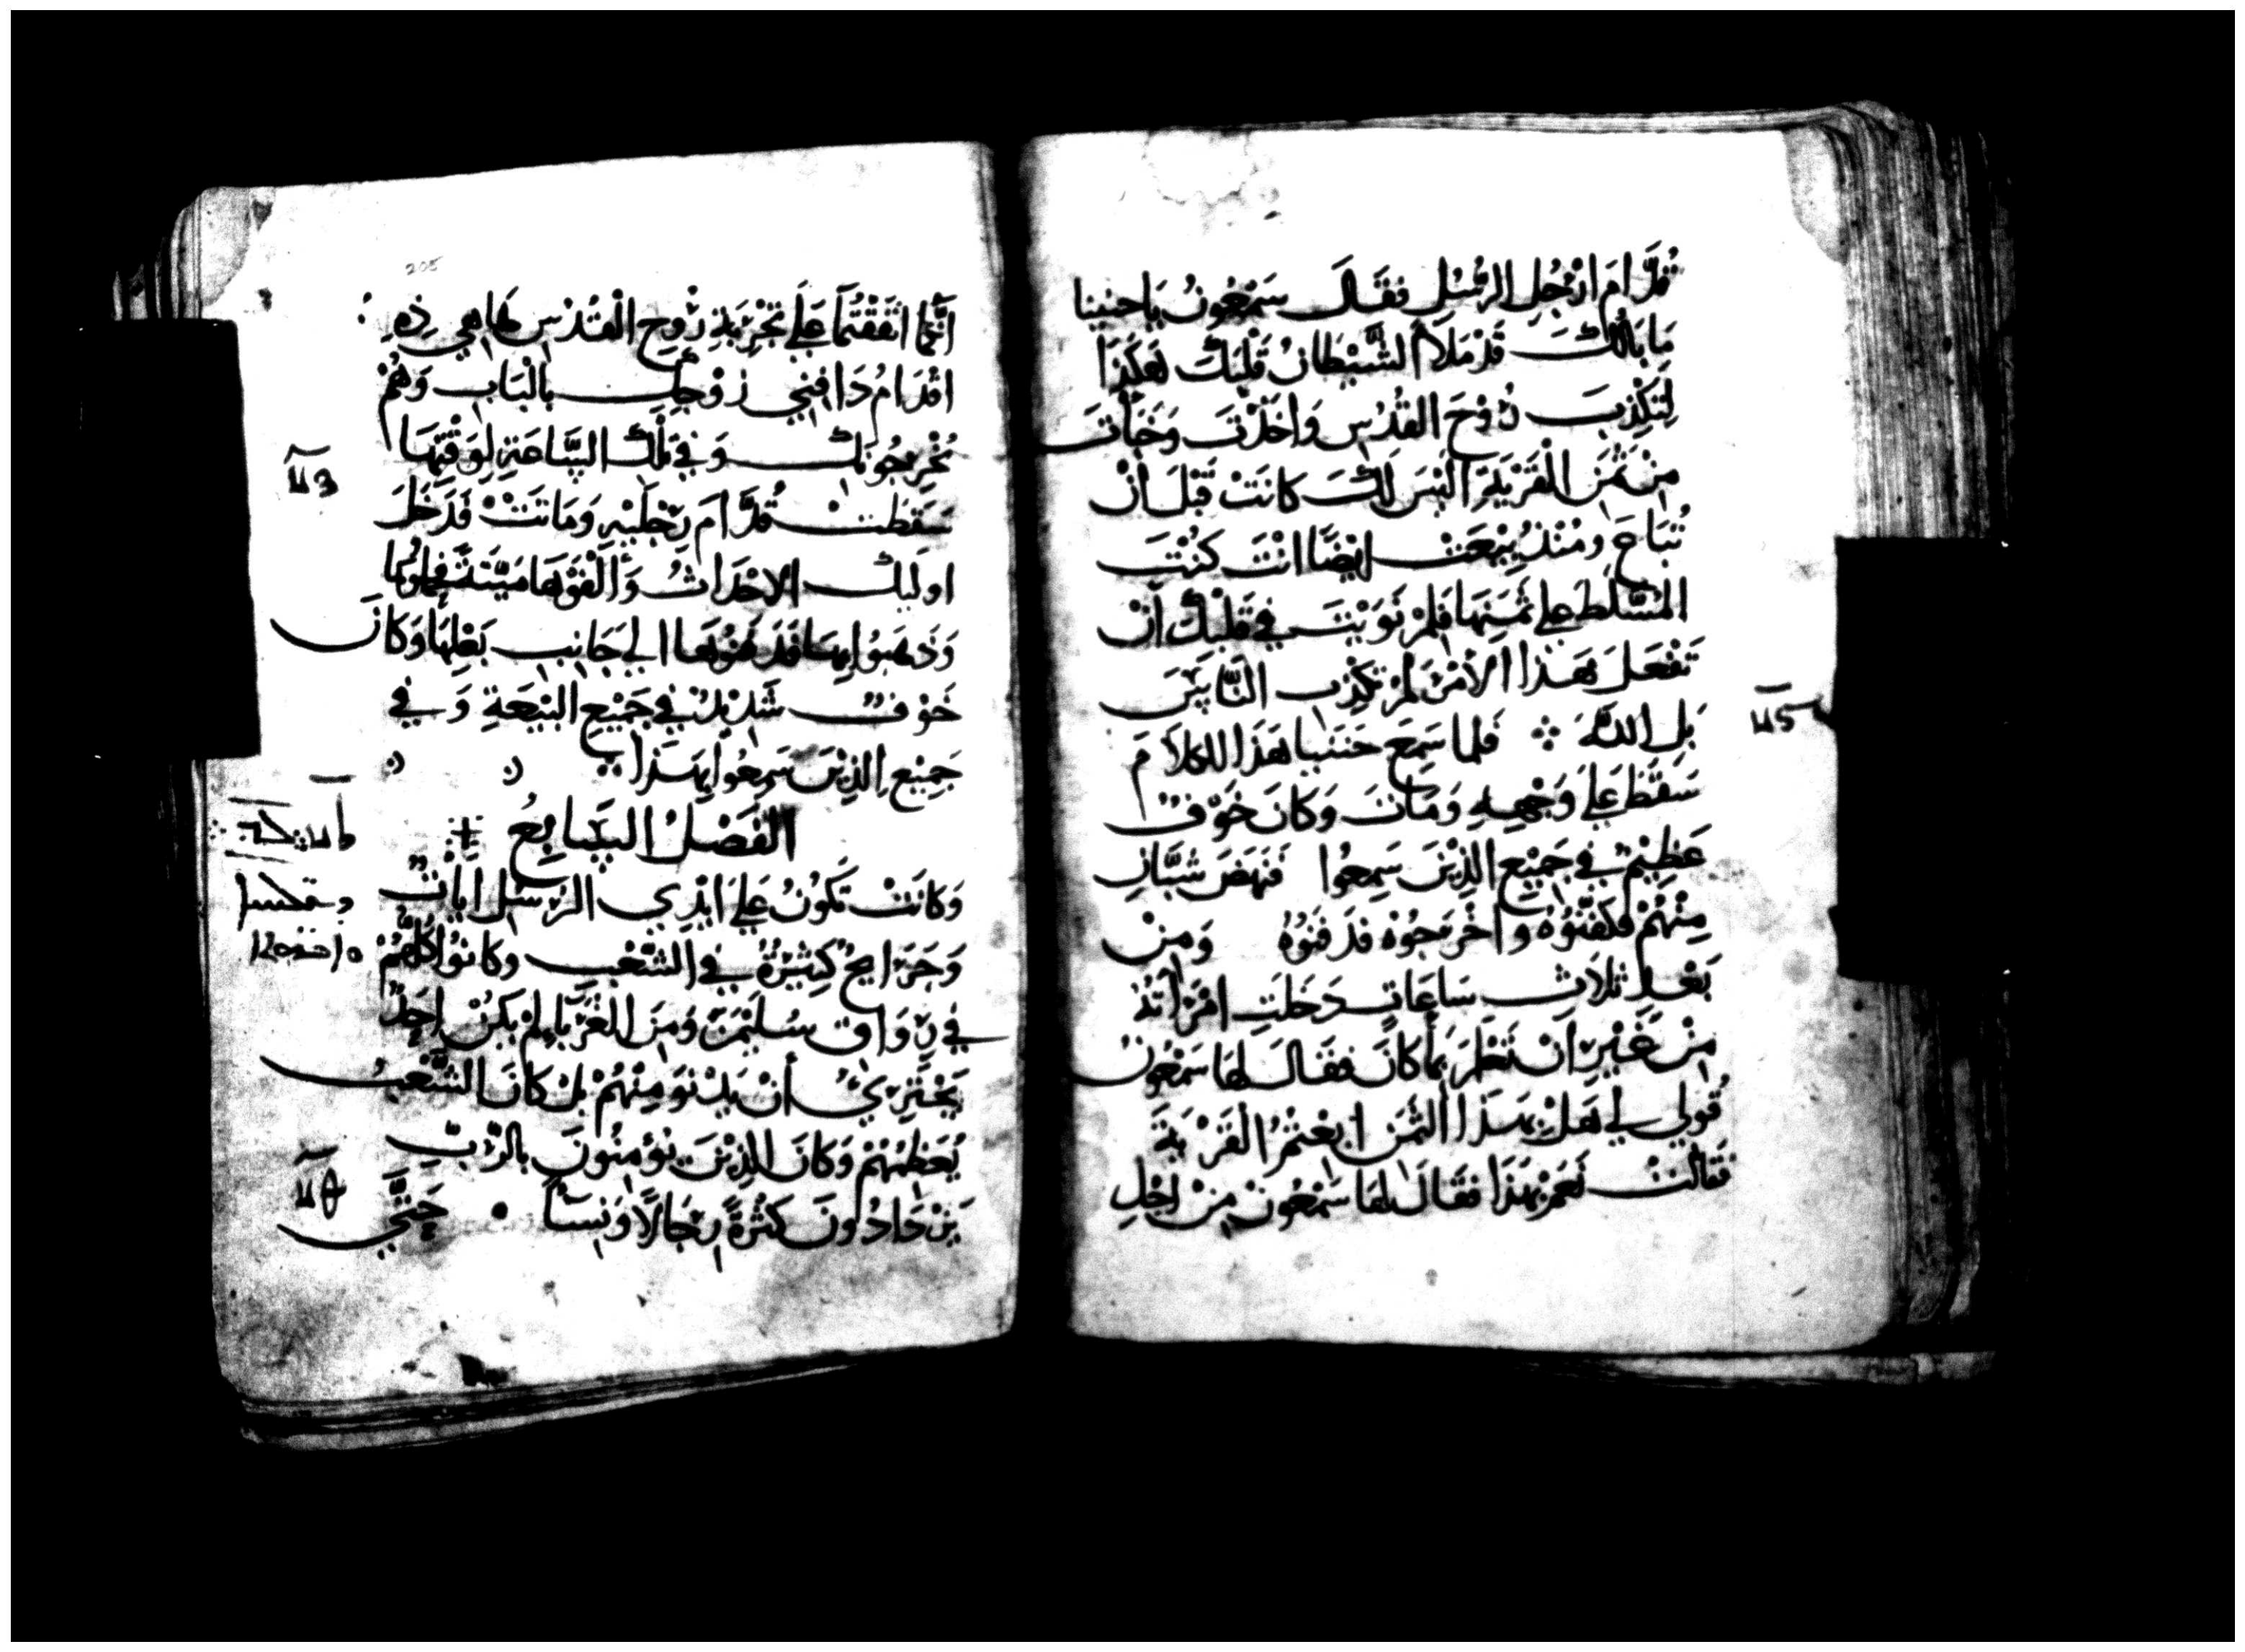 قُدَّامَ ارْجُلِ الرُّسُلِ فقَالَ سَمْعُونُ يَاحننيا
مَا بَالُكَ قَدْ مَلَأَ الشَّيْطَانُ قَلْبَكَ هَكَذَا
لِتَكْذِبَ رُوْحَ القُدُسِ وَاخَذْتَ وَخَبأتَ
مِنْ ثَمَنِ الْقَرْيَةِ الَيْسَ لَكَ كَانَتْ قَبْلَ أَنْ
تُبَاعَ وَمُنْذُ بِيْعَتْ ايْضًا انْتَ كُنْتَ
المُسَلَّطَ عَلى ثمَنِهَا فَلِمْ نَوَيْتَ في قَلْبِكَ أَنْ
تَفْعَلَ هَذا الأَمْرَ لَمْ تَكْذِبِ النَّاسَ
بَلِ اللهَ ܀ فَلَما سَمِعَ حَنَنيا هَذَا الكلاَمَ
سَقَطَ عَلى وَجْهِهِ وَمَاتَ وَكَانَ خَوْفٌ
عَظِيْمٌ في جَمِيْعِ الذِيْنَ سَمِعُوا فَنَهَضَ شَبَّانٌ
مِنْهُمْ فَكَفَّنُوْهُ وأخْرَجُوْهُ فَدَفَنُوْهُ وَمِنْ
بَعْدِ ثَلاَثِ سَاعَاتٍ دَخَلَتِ امْرَأَتُهُ
مِنْ غَيْرِ أَنْ تَعْلَمَ بمَا كَانَ فقَالَ لهَا سَمْعُونُ
قُولي لي هَلْ بهَذَا الثَّمَنِ ابِعْتُمُ القَرْيَةَ
فَقَالَتْ نَعَمْ بهَذَا فقَالَ لهَا سَمْعُونُ مِنْ اجْلِ
205
أَنَّكُمَا اتَّفَقْتُمَا عَلَى تَجْرِبَةِ رُوْحِ الْقُدُسِ هَا هِي ذِهِ
اقْدَامُ دَافِنِي زَوْجِكِ بِالْبَابِ وَهُمْ
يُخْرِجُونَكِ وَفي تِلْكَ السَّاعَةِ لِوَقْتِهَا
سَقَطَتْ قُدَّامَ رِجْلَيْهِ وَمَاتَتْ فَدَخَلَ
اولَيكَ الاحْدَاثُ وَأَلْفَوْهَا مَيِّتَةً فحمَلُوْهَا
وَذَهَبُوا بِهَا فَدَفَنُوْهَا الى جَانِبِ بَعْلِهَا وَكَانَ
خَوْفٌ شَدِيْدٌ في جَمِيْعِ البِيْعَةِ وَفي
جَمِيْعِ الذِيْنَ سَمِعُوا بِهَذَا
الْفَصْلُ السَّابِعُ
وَكَانَتْ تَكُونُ عَلى ايْدِي الرُّسُلِ ايَاتٌ
وَجَرَايحُ كَثِيْرَةٌ في الشَّعْبِ وكَانُوْا كُلُّهُمْ
في رِوَاقِ سُلَيْمَنَ وَمِنَ الغُرَبَاءِ لَمْ يَكُنْ احَدٌ
يَجْتَرِئُ أَنْ يَدْنُوَ مِنْهُمْ بَلْ كَانَ الشَّعْبُ
يُعَظِّمُهُمْ وَكَانَ الذِيْنَ يُوْمِنُونَ بالرَّبِّ
يَزْدَادُونَ كَثْرَةً رِجَالاً وَنِسَاً • حَتَّى